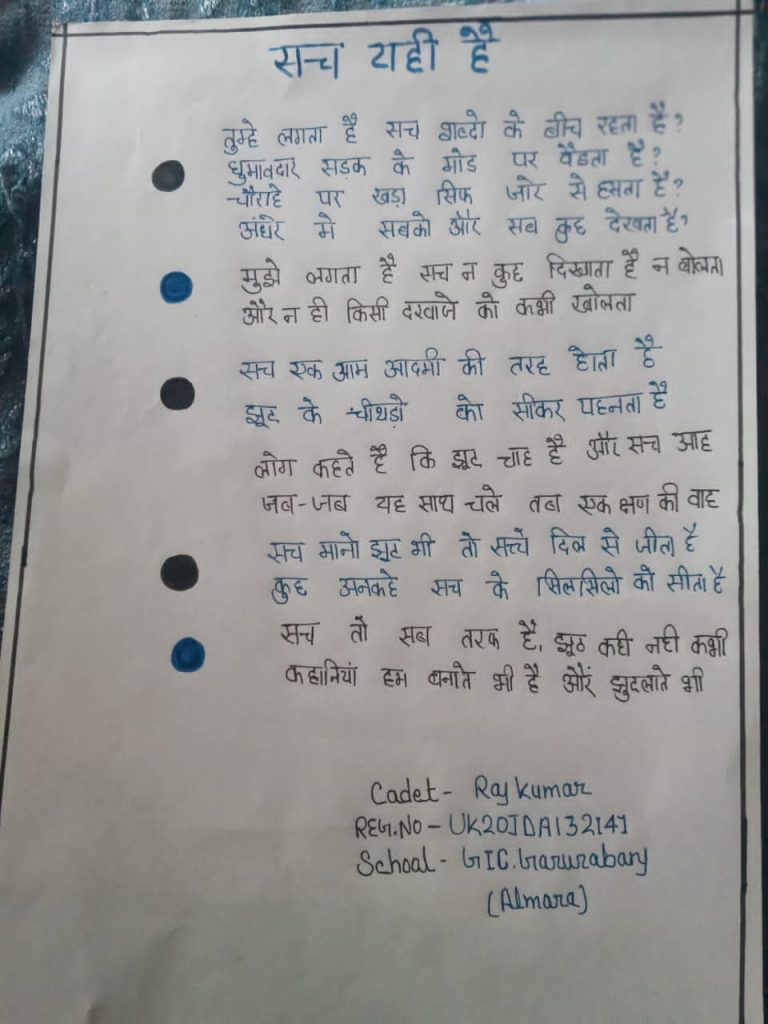 सच यही है
तुम्हे लगता है सच शब्दो के बीच रहता है?
घुमावदार सड़क के मोड पर बैठता है?
चौराहे पर खड़ा सिफ जोर से हसता है?
अंधेरे मे सबको और सब कुछ देखता है?
मुझे लगता है सच न कुछ दिखाता है न बोलता
और न ही किसी दरवाजे को कभी खोलता
सच एक आम आदमी की तरह होता है
झूठ के चीथड़ो को सीकर पहनता है
लोग कहते है कि झूठ चाह है और सच आह
जब-जब यह साथ चले तब एक क्षण की वाह
सच मानो झूठ भी तो सच्चे दिल से जीता है
कुछ अनकहे सच के सिलसिलो को सीता है
सच तो सब तरफ है, झूठ कही नही कभी
कहानियां हम बनाते भी है और झुठलाते भी
Cadet- Raj Kumar
REG.NO - UK20JDA132141
School - GIC.Garurabanj
(Almora)